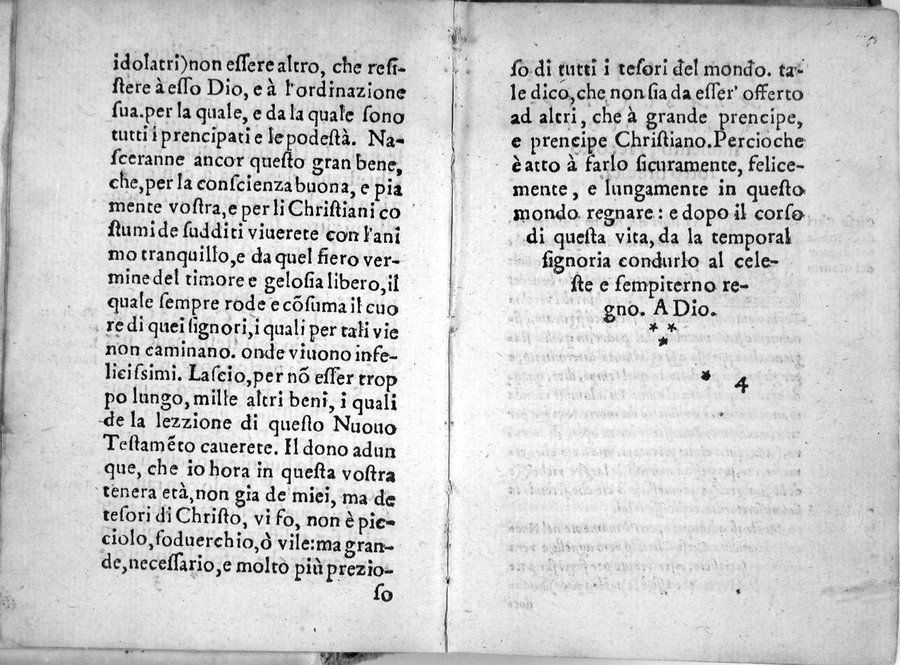 idolatri) non essere altro, che resi-
stere à esso Dio, e à l'ordinazione
sua. per la quale, e da la quale sono
tutti i prencipati e le podestà. Na-
sceranne ancor questo gran bene,
che, per la conscienza buona, e pia
mente vostra, e per li Christiani co
stumi de sudditi viuerete con l'ani
mo tranquillo, e da quel fiero ver-
mine del timore e gelosia libero, il
quale sempre rode e cõsuma il cuo
re di quei signori, i quali per tali vie
non caminano. onde viuono infe-
licissimi. Lascio, per nõ esser trop
po lungo, mille altri beni, i quali
de la lezzione di questo Nuouo
Testamẽto cauerete. Il dono adun
que, che io hora in questa vostra
tenera età, non gia de miei, ma de
tesori di Christo, vi fo, non è pic-
ciolo, souerchio, ò vile: ma gran-
de, necessario, e molto più prezio-
so
so di tutti i tesori del mondo. ta-
le dico, che non sia da esser' offerto
ad altri, che à grande prencipe,
e prencipe Christiano. Percioche
è atto à farlo sicuramente, felice-
mente, e lungamente in questo
mondo regnare: e dopo il corso
di questa vita, da la temporal
signoria condurlo al cele-
ste e sempiterno re-
gno. A Dio.
* *
*
* 4